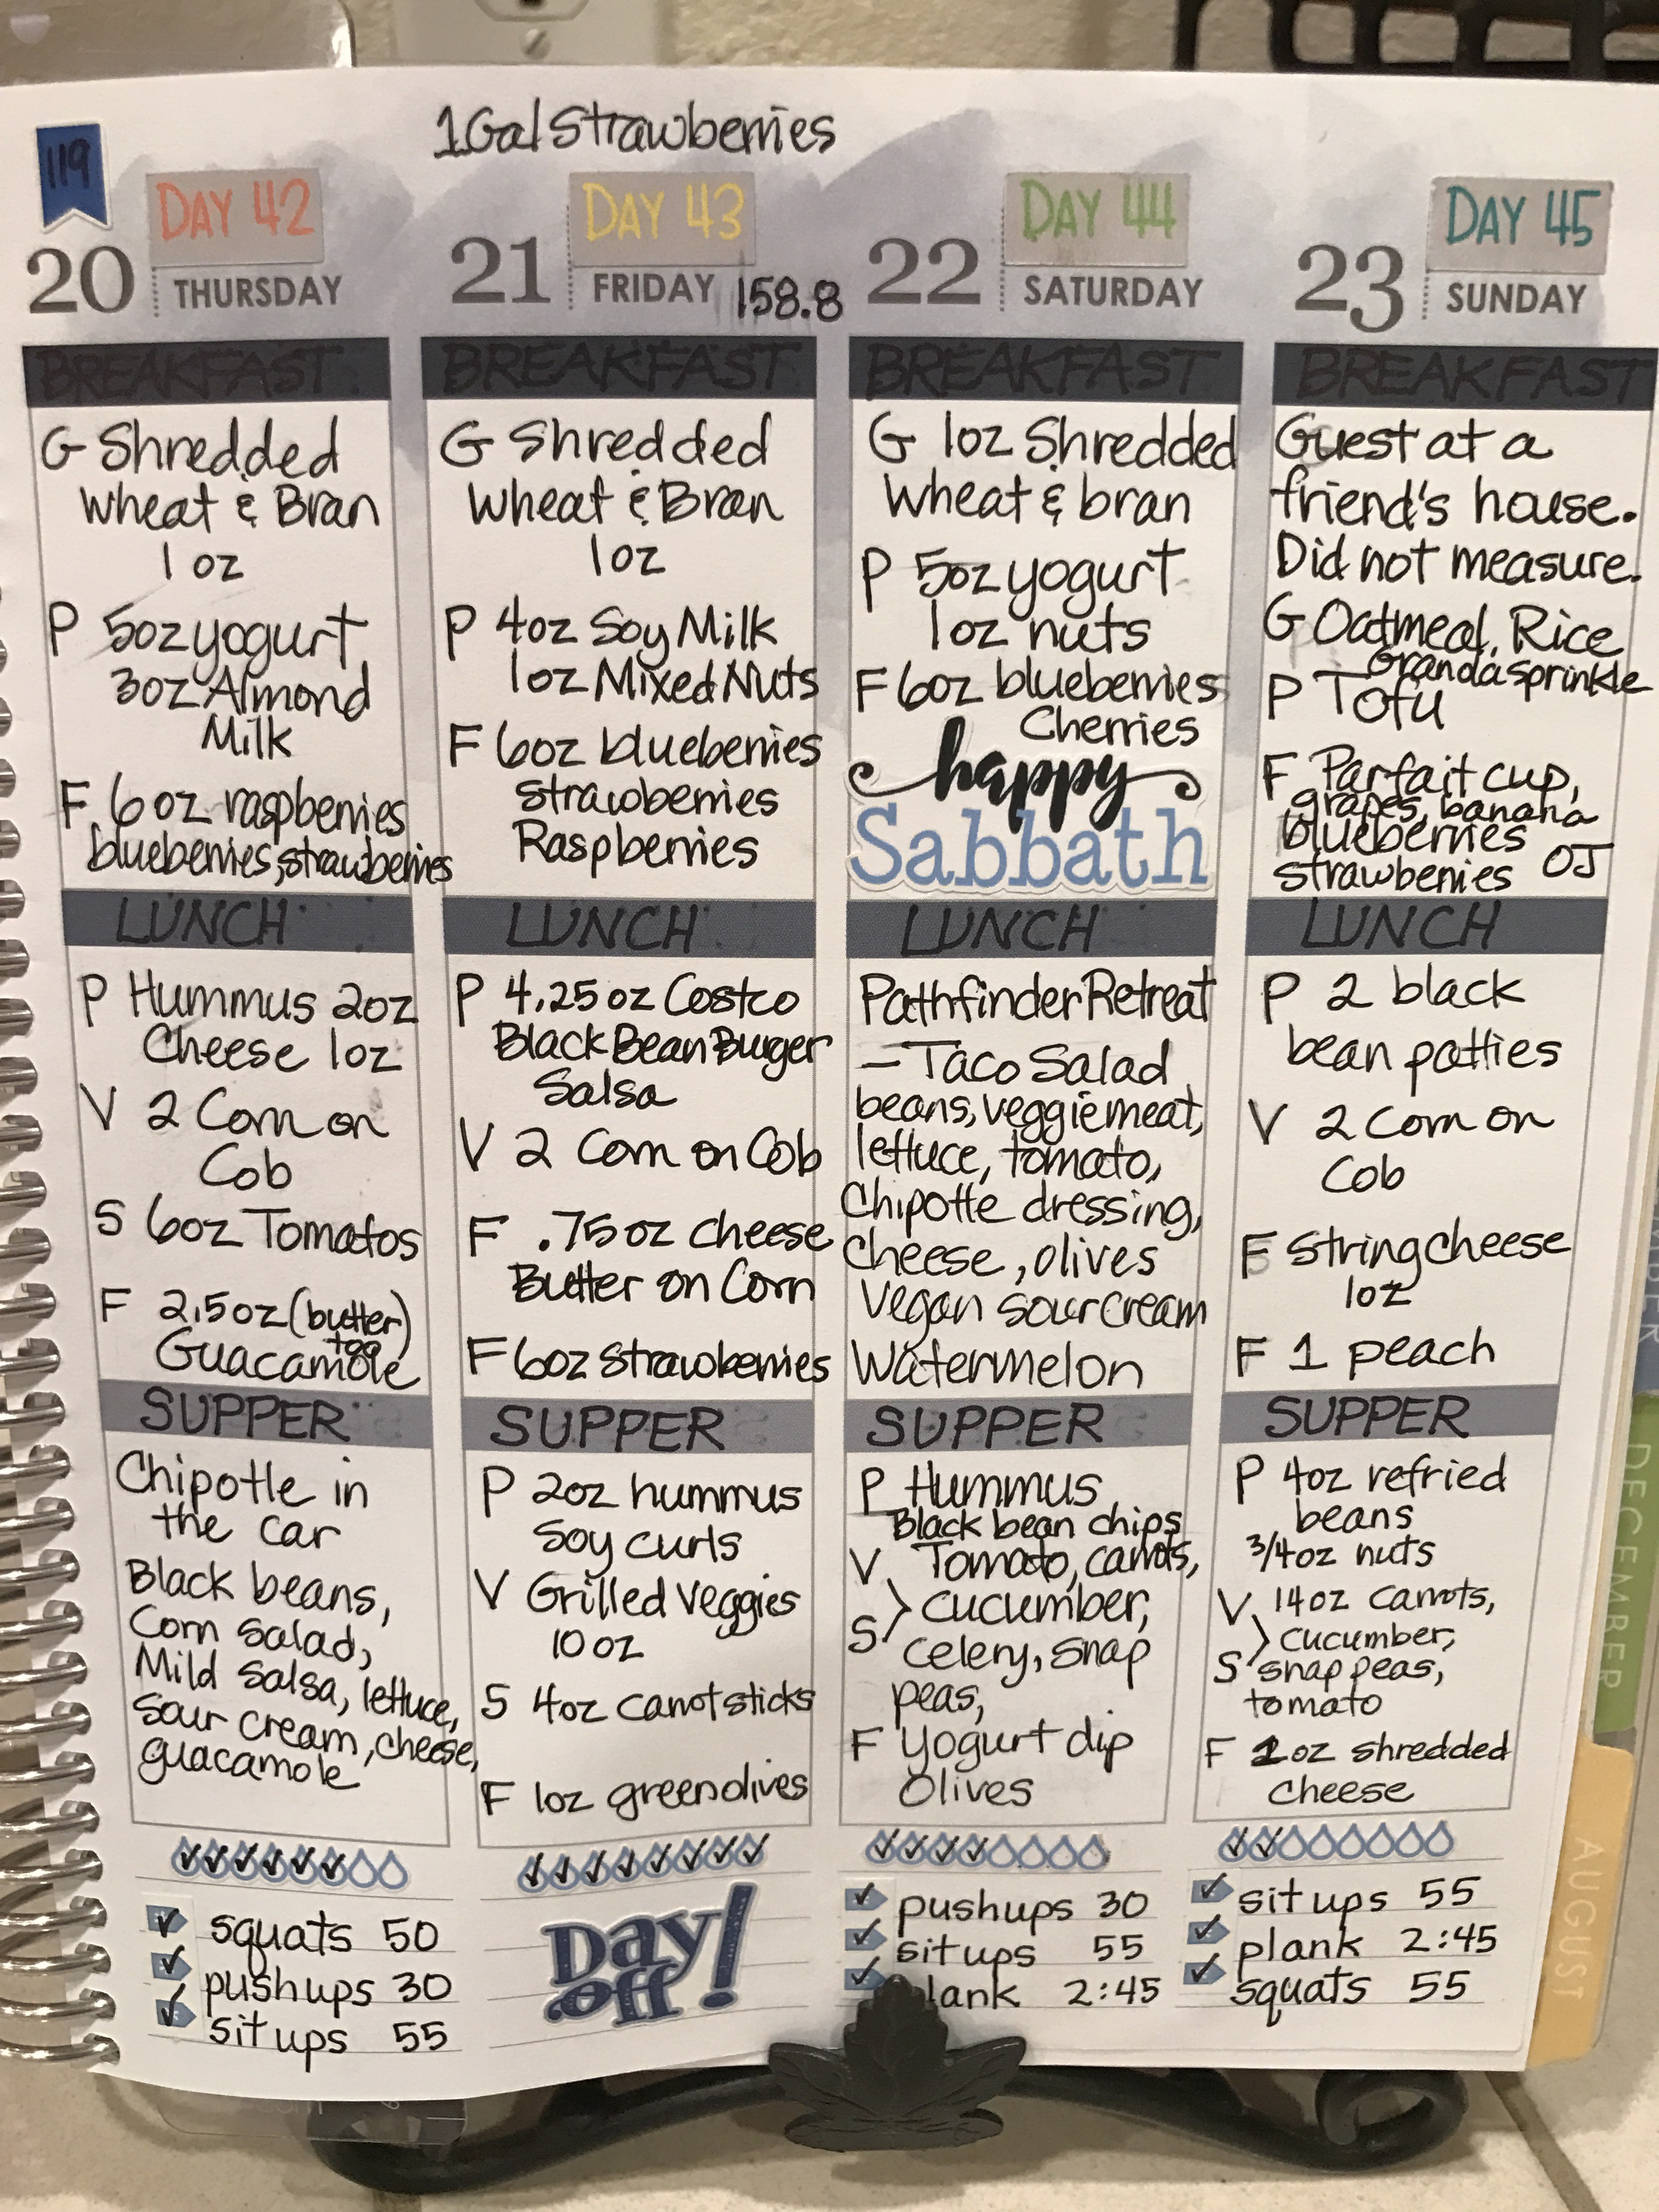 1 Gal Strawberries
119
DAY 42
20 THURSDAY
BREAKFAST
G Shredded
Wheat & Bran
1 oz
P 5oz yogurt
3oz Almond
Milk
F 6oz raspberries
blueberries, strawberries
LUNCH
P Hummus 2oz
Cheese 1oz
V 2 Corn on
Cob
S 6oz Tomatos
F 2.5oz (butter)
too
Guacamole
SUPPER
Chipotle in
the car
Black beans,
Corn Salad,
Mild Salsa, lettuce,
Sour cream, cheese,
guacamole
squats 50
pushups 30
sit ups 55
DAY 43
21 FRIDAY 158.8
BREAKFAST
G Shredded
Wheat & Bran
1oz
P 4oz Soy Milk
1oz Mixed Nuts
F 6oz blueberries
Strawberries
Raspberries
LUNCH
P 4.25 oz Costco
Black Bean Burger
Salsa
V 2 Corn on Cob
F .75 oz cheese
Butter on Corn
F 6oz Strawberries
SUPPER
P 2oz hummus
Soy curls
V Grilled Veggies
10 oz
S 4oz carrot sticks
F 1oz green olives
Day off!
DAY 44
22 SATURDAY
BREAKFAST
G 1oz Shredded
Wheat & bran
P 5oz yogurt
1oz nuts
F 6oz blueberries
Cherries
happy
Sabbath
LUNCH
Pathfinder Retreat
- Taco Salad
beans, veggie meat,
lettuce, tomato,
Chipotte dressing,
Cheese, olives
Vegan Sour cream
Watermelon
SUPPER
P Hummus
Black bean chips
V Tomato, carrots,
S > cucumber,
celery, snap
peas,
F yogurt dip
Olives
pushups 30
sit ups 55
lank 2:45
DAY 45
23 SUNDAY
BREAKFAST
Guest at a
friend's house.
Did not measure.
G Oatmeal, Rice
Granola sprinkle
P Tofu
F Parfait cup,
grapes, banana
blueberries
strawberries OJ
LUNCH
P 2 black
bean patties
V 2 Corn on
Cob
F String cheese
1oz
F 1 peach
SUPPER
P 4oz refried
beans
3/4oz nuts
V 14oz carrots,
> cucumber,
S snap peas,
tomato
F oz shredded
cheese
sit ups 55
plank 2:45
squats 55
DECEMBER
AUGUST